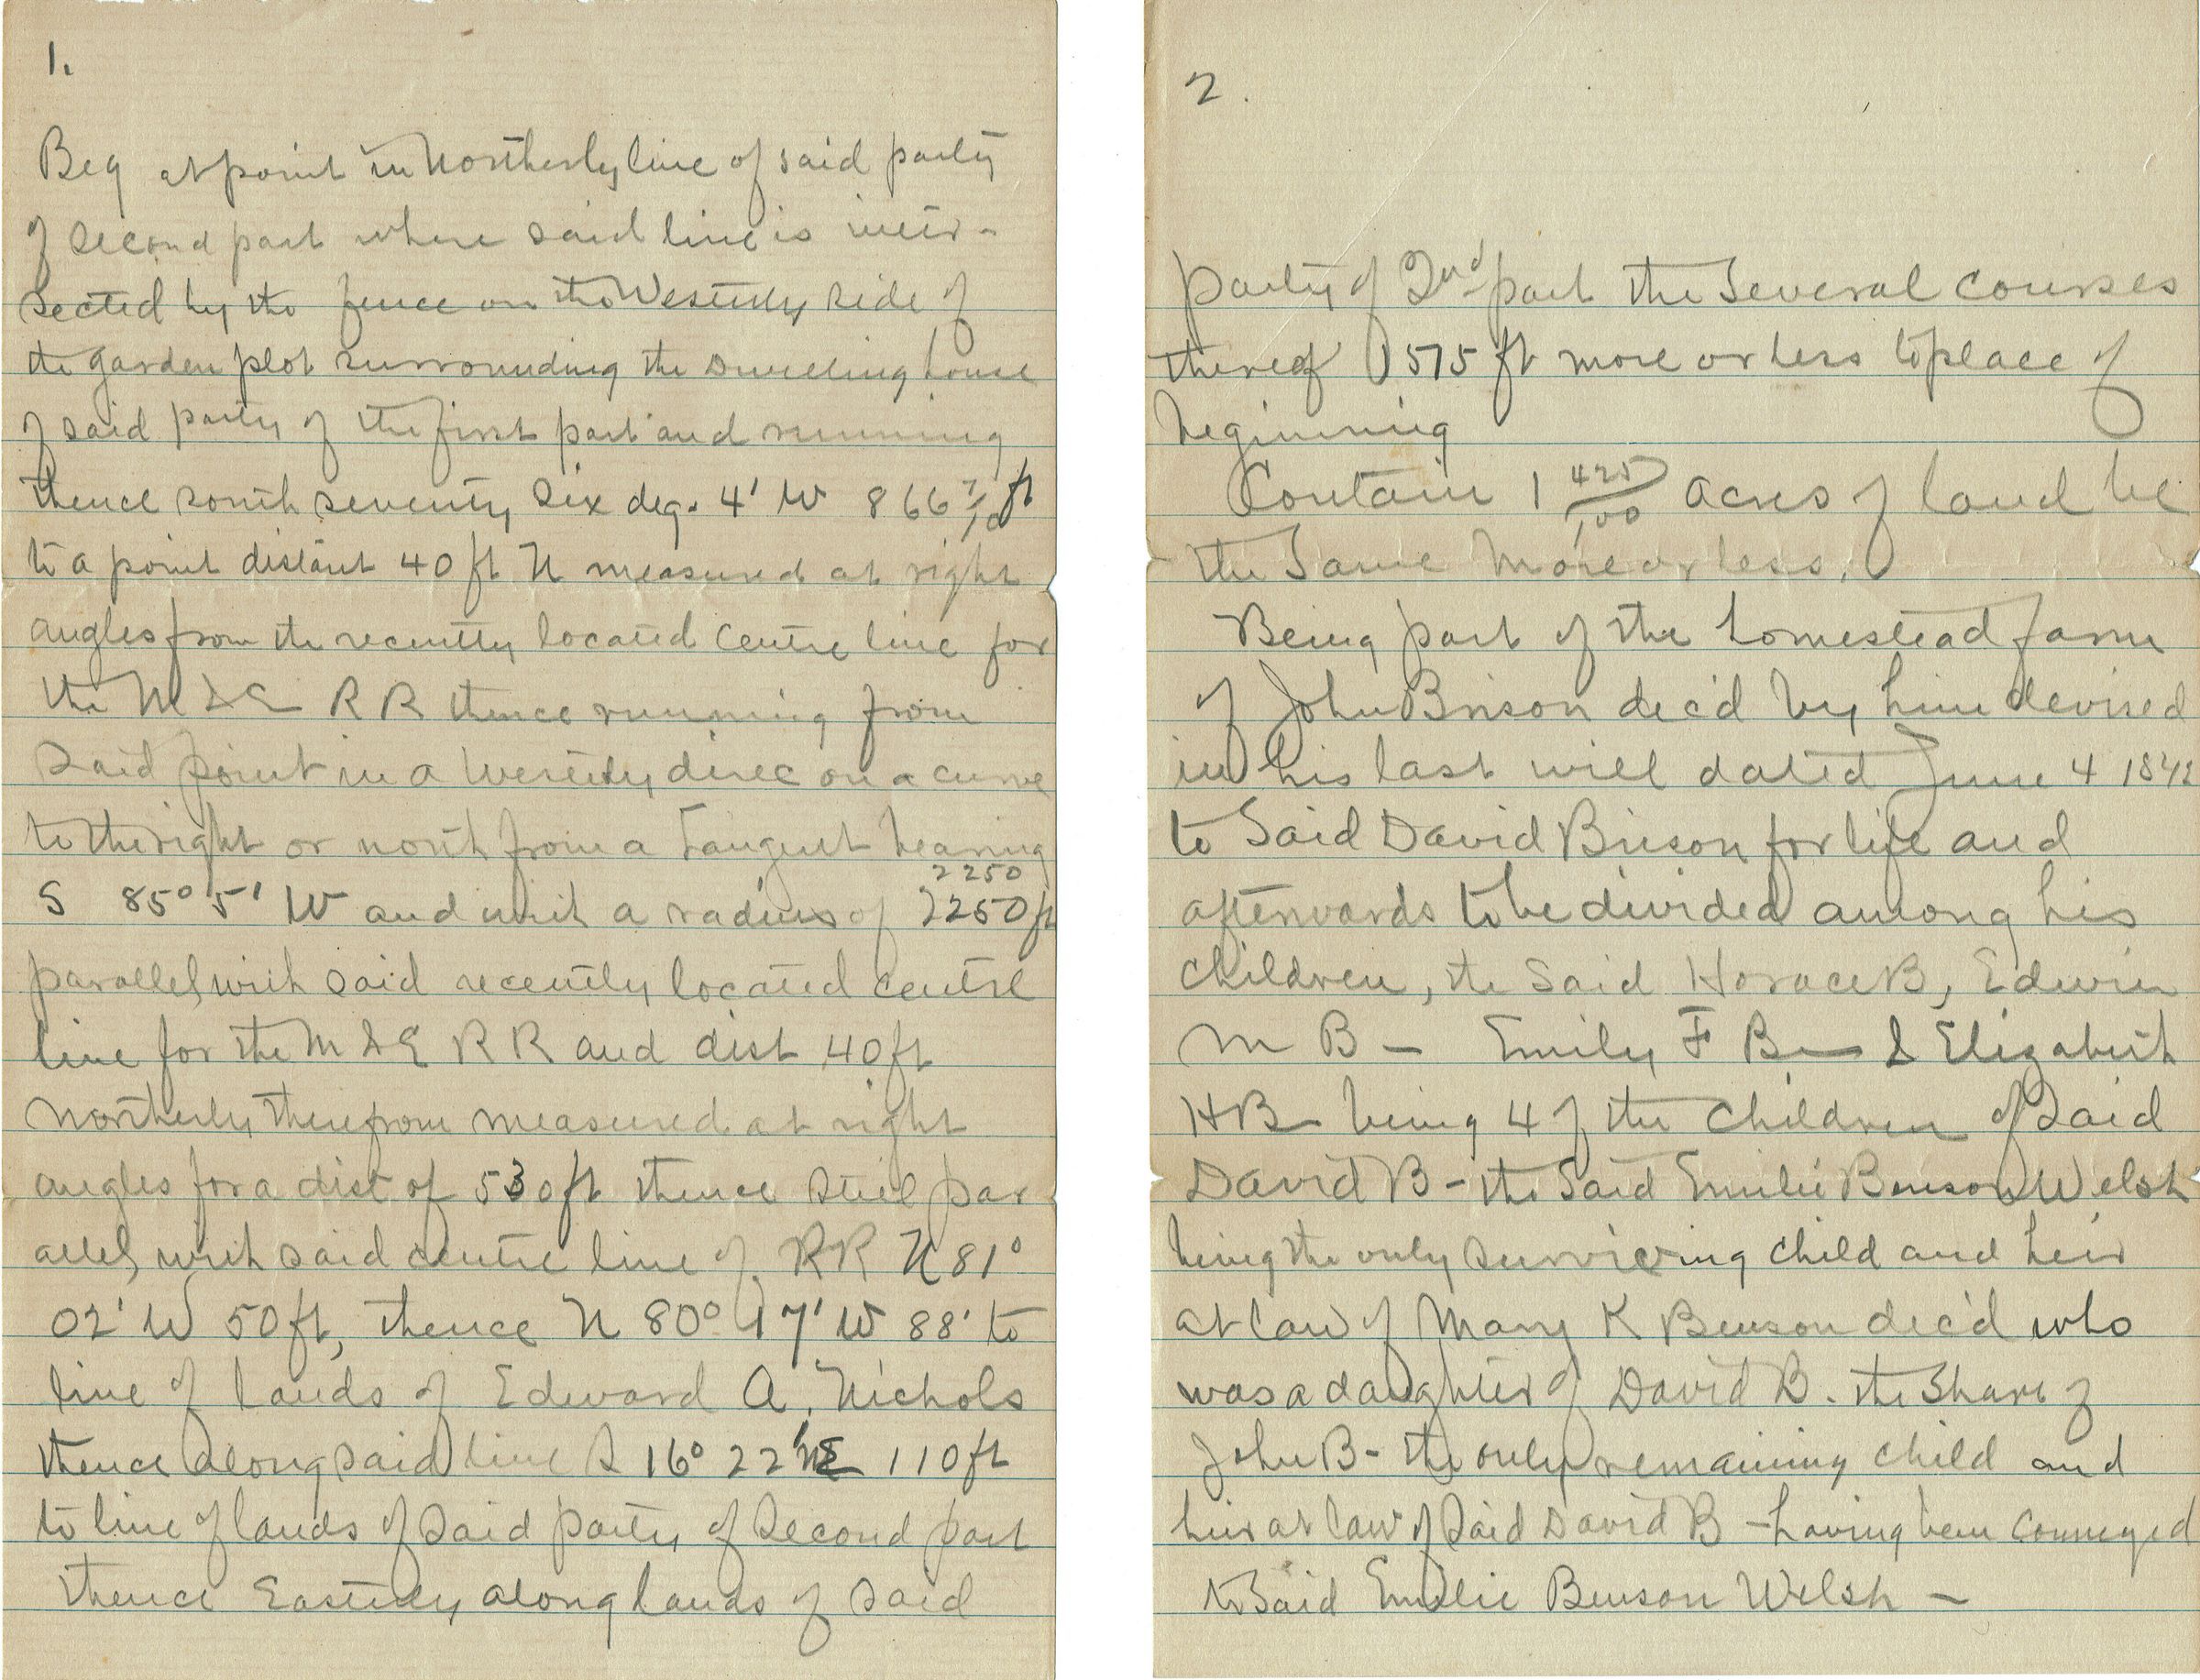 1.
Beg at point in Northerly line of said party
of second part where said line is inter-
sected by the fence on the Westerly side of
the garden plot surrounding the Dwelling house
of said party of the first part and running
thence south seventy six deg. 4' W 866 7/10 ft
to a point distant 40 ft N measured at right
angles from the recently located centre line for
the M & E RR thence running from
said point in a Westerly direc on a curve
to the right or north from a Tangent bearing
2250
S 85° 5' W and with a radius of 2250 ft
parallel with said recently located centre
line for the M & E RR and dist 40 ft
Northerly therefrom measured at right
angles for a dist of 530 ft thence still par
allel with said centre line of RR N 81°
02' W 50 ft, thence N 80° 17' W 88' to
line of lands of Edward A. Nichols
thence along said line S 16° 22' E 110 ft
to line of lands of said party of second part
thence Easterly along lands of said
2.
party of 2nd part the several courses
thereof 1575 ft more or less to place of
beginning
Contain 1 425/100 acres of land be
the same more or less.
Being part of the homestead farm
of John Bnson dec'd by him devised
in his last will dated June 4 1842
to said David Bnson for life and
afterwards to be divided among his
children, the said Horace B, Edwin
M B - Emily F B & Elizabeth
H B being 4 of the children of said
David B - the said Emilie Benson Welsh
being the only surviving child and heir
at law of Mary K Benson dec'd who
was a daughter of David B. the share of
John B - the only remaining child and
heir at law of said David B - having been conveyed
to said Emilie Benson Welsh -